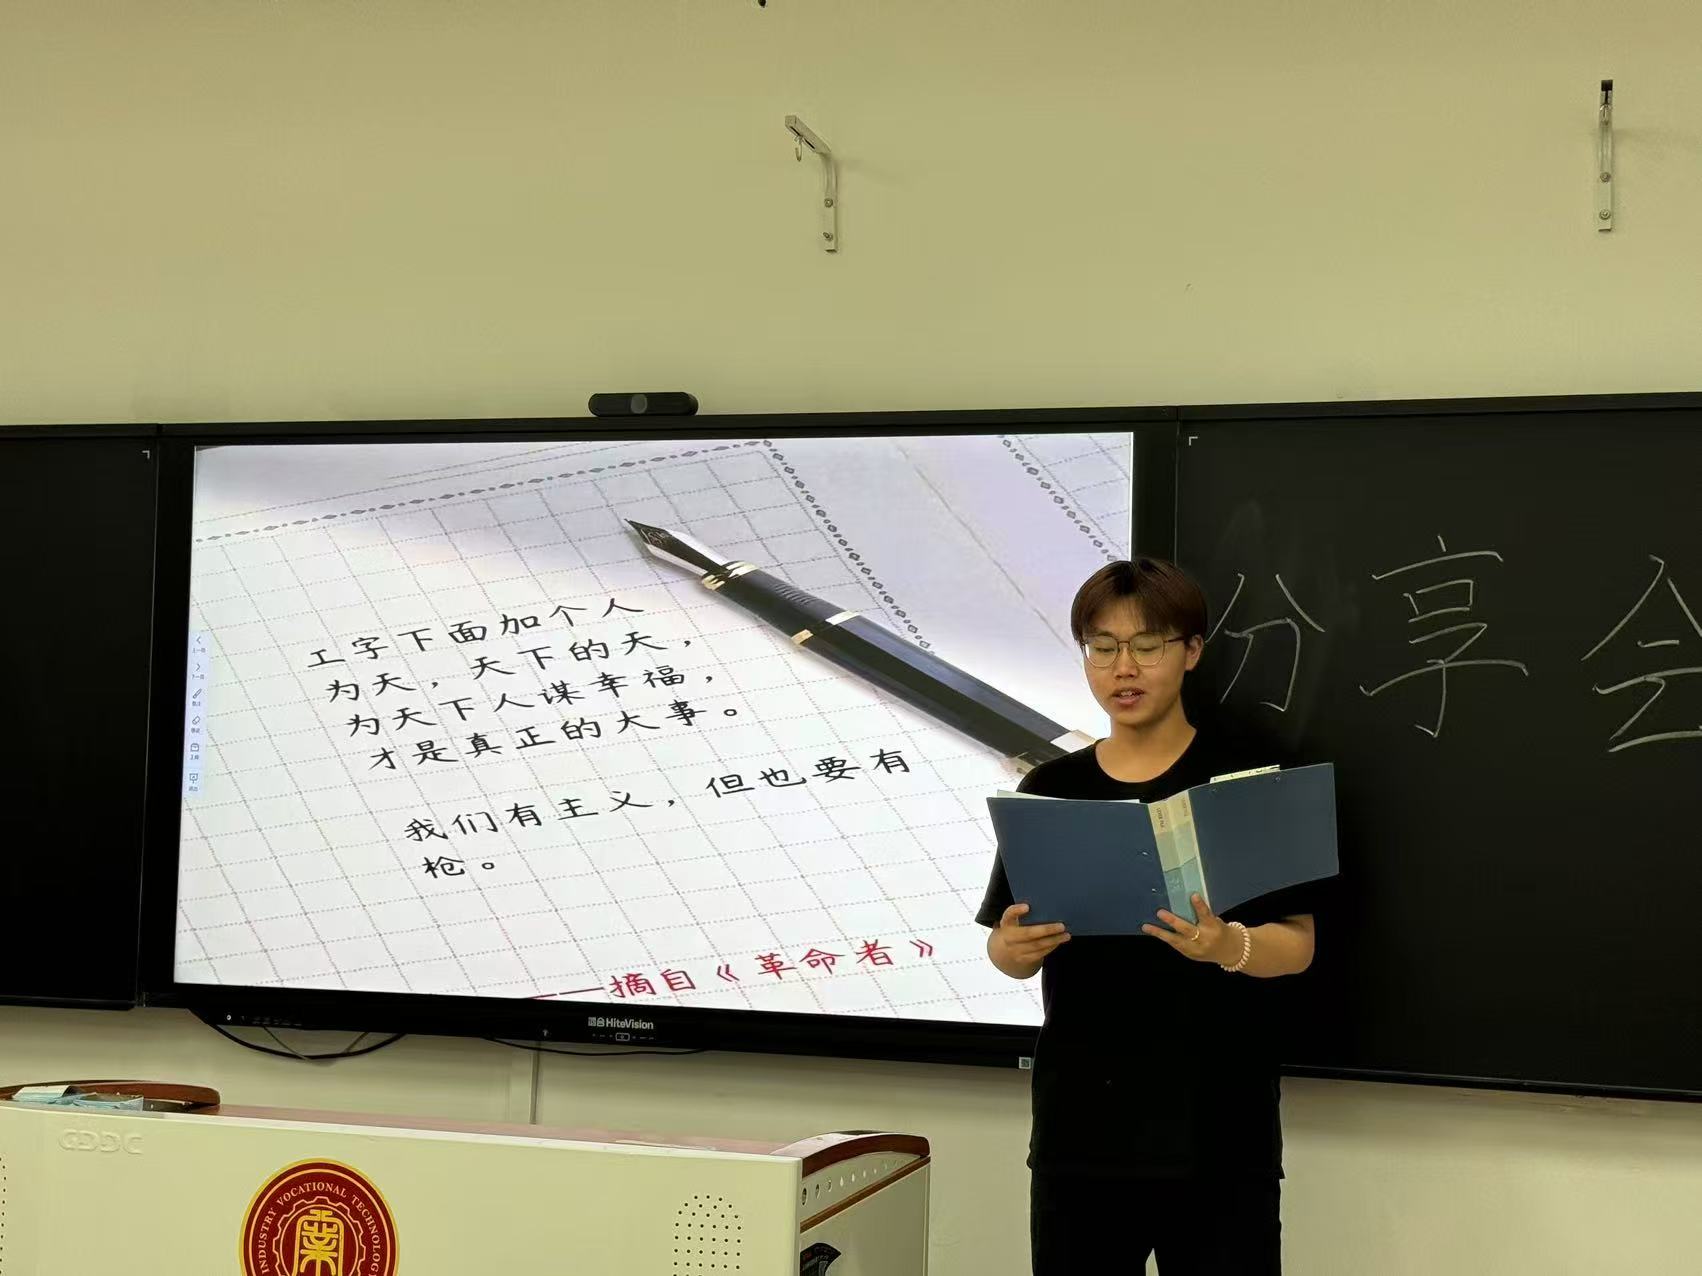 工字下面加个人
为天，天下的天，
为天下人谋幸福，
才是真正的大事。
我们有主义，但也要有
枪。
——摘自《革命者》
分享会
HiteVision
GDDC
INDUSTRY VOCATIONAL TECHNOLOGY